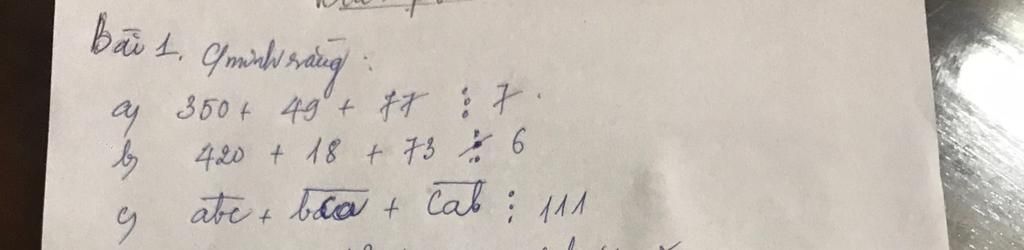 Bài 1. Cminh rằng :
a) 350 + 49 + 77 ⋮ 7.
b) 420 + 18 + 73 ⋮̸ 6
c) a̅b̅c̅ + b̅c̅a̅ + c̅a̅b̅ ⋮ 111